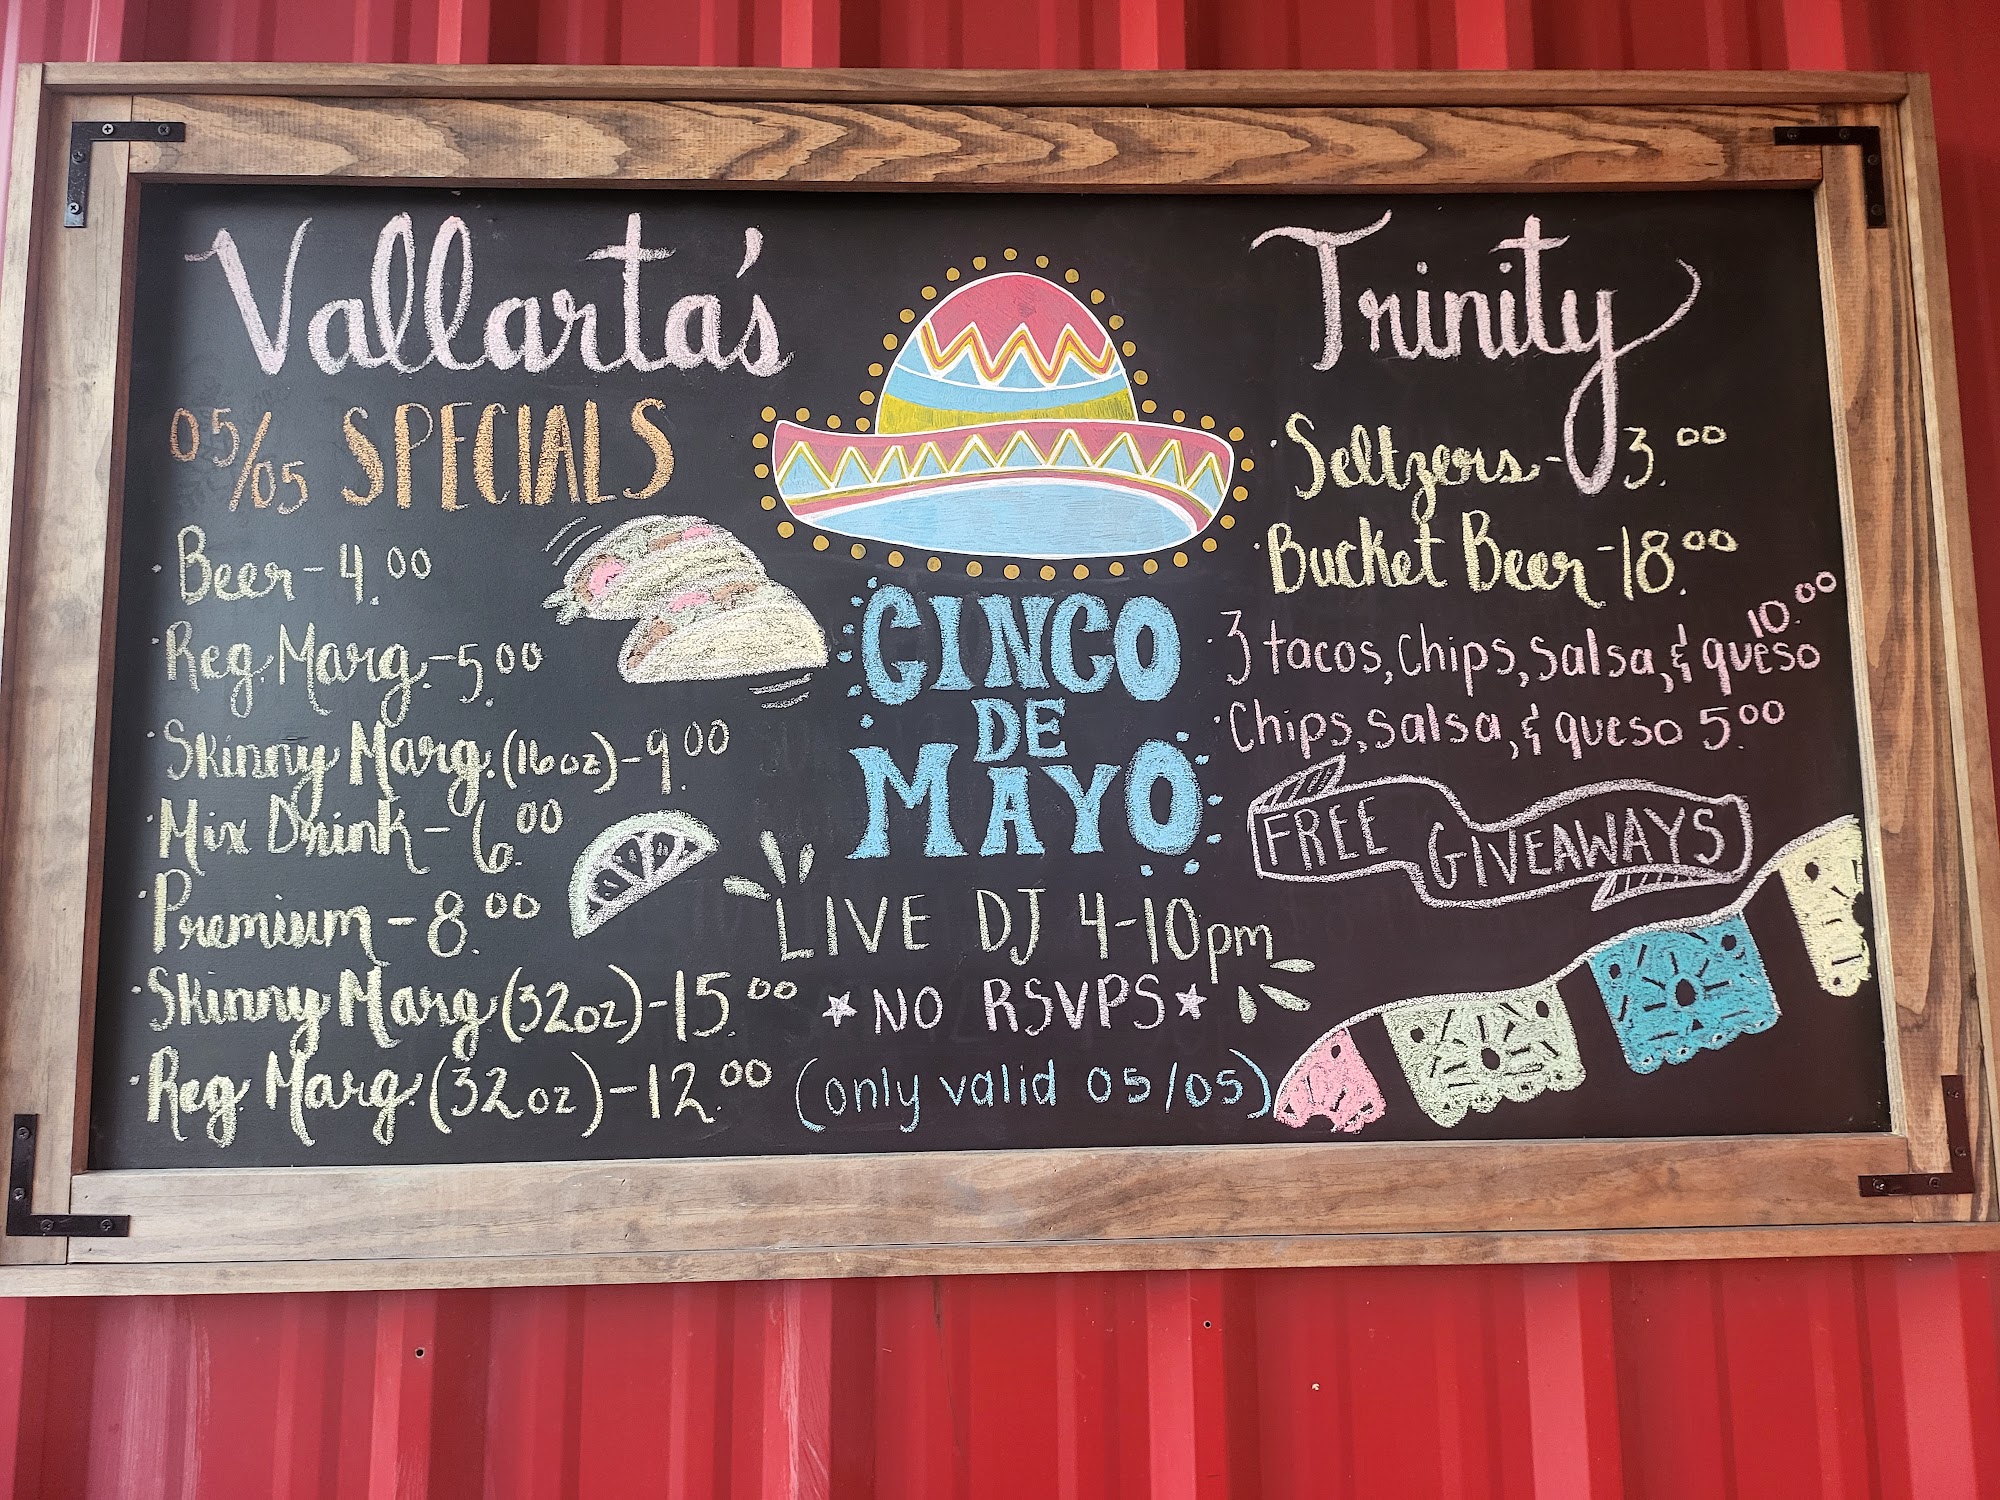 Vallarta's
Trinity
05/05 SPECIALS
· Beer - 4.00
· Reg. Marg. - 5.00
· Skinny Marg. (16oz) - 9.00
· Mix Drink - 6.00
· Premium - 8.00
· Skinny Marg (32oz) - 15.00
· Reg. Marg. (32oz) - 12.00
CINCO
DE
MAYO
LIVE DJ 4-10pm
★ NO RSVPS ★
(only valid 05/05)
· Seltzers - 3.00
· Bucket Beer - 18.00
· 3 tacos, Chips, Salsa, & queso 10.00
· Chips, salsa, & queso 5.00
FREE GIVEAWAYS